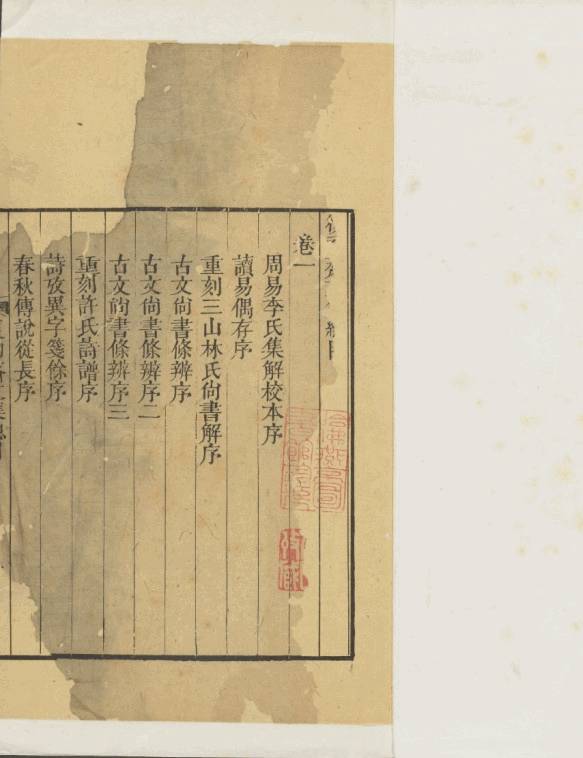 卷一
周易李氏集解校本序
讀易偶存序
重刻三山林氏尙書解序
古文尙書條辨序
古文尙書條辨序二
古文尙書條辨序三
重刻許氏詩譜序
詩攷異字箋餘序
春秋傳說從長序